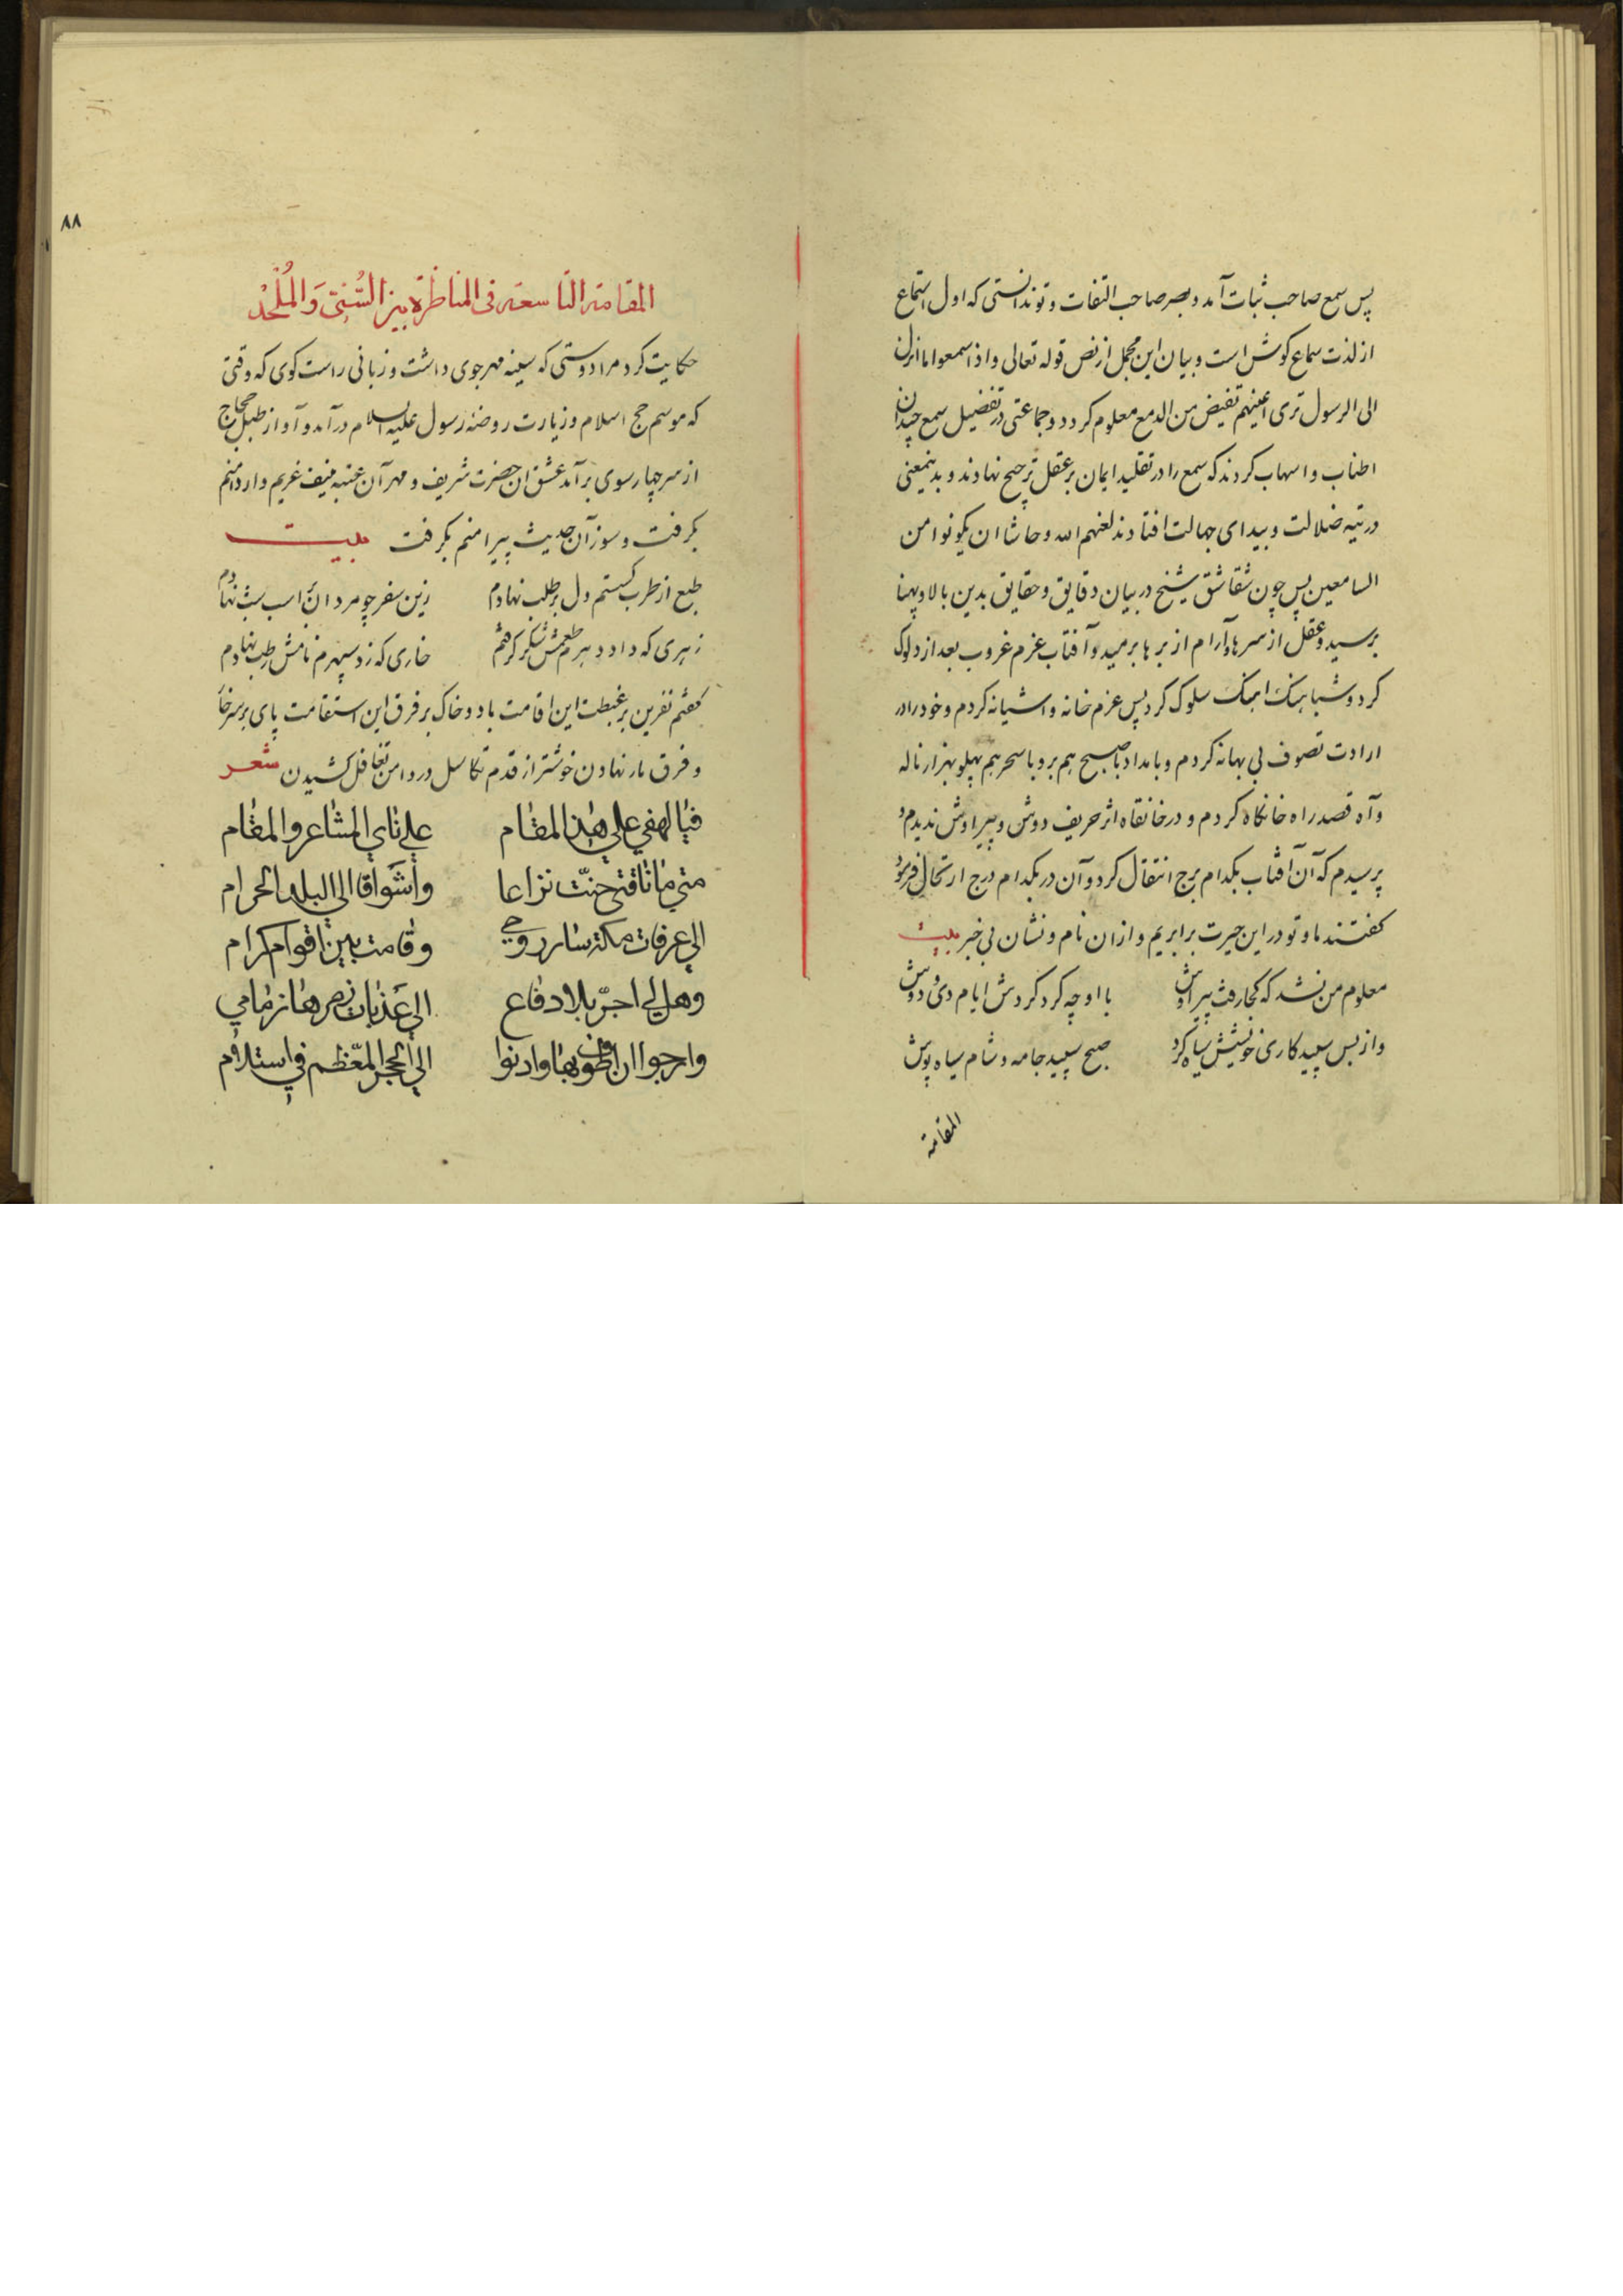 پس سمع صاحب ثبات آمد و بصر صاحب التفات و تو ندانستی که اول استماع
از لذت سماع کوش است و بیان این مجمل از نص قوله تعالی واذا سمعوا ما انزل
الی الرسول تری اعینهم تفیض من الدمع معلوم کردد و جماعتی در تفضیل سمع چندان
اطناب و اسهاب کردند که سمع را در تقلید ایمان بر عقل ترجیح نهادند و بدینمعنی
در تیه ضلالت و بیدای جهالت افتادند لعنهم الله و حاشا ان یکونوا من
السامعین پس چون شقاشق شیخ در بیان دقایق و حقایق بدین بالا و پهنا
برسید و عقل از سرها و آرام از برها برمید و آفتاب عزم غروب بعد از دلوک
کرد و شباهنک اهنک سلوک کرد پس عزم خانه و اشیانه کردم و خود را در
ارادت تصوف بی بهانه کردم و بامداد با صبح هم برو با سحر هم پهلو بهزار ناله
و آه قصد راه خانکاه کردم و در خانقاه اثر حریف دوشن و پیر اوش ندیدم و
پرسیدم که آن آفتاب بکدام برج انتقال کرد و آن در بکدام درج ارتحال فرمود
کفتند ما و تو در این حیرت برابریم و از ان نام و نشان بی خبر بیت
معلوم من نشد که کجا رفت پیر اوش با او چه کرد کردش ایام دی و دوش
واز بس سپید کاری خویشش سیاه کرد صبح سپید جامه و شام سیاه پوش
المقامة
٨٨
المقامة التاسعة فی المناظرة بین السُّنّی وَالمُلْحِدْ
حکایت کرد مرا دوستی که سینه مهرجوی داشت و زبانی راست کوی که وقتی
که موسم حج اسلام و زیارت روضه رسول علیه السلام درآمد و آواز طبل حجاج
از سر چهارسوی برآمد عشق ان حضرت شریف و مهر آن عتبه منیف غریم وار دامنم
بکرفت و سوز آن حدیث پیرامنم بکرفت بیت
طبع از طرب کسستم و دل بر طلب نهادم زین سفر چو مردان بر اسب شب نهادم
زهری که داد دهرم طعمش شکر کرفتم خاری که زد سپهرم نامش رطب نهادم
کفتم نفرین بر غبطت این اقامت باد و خاک بر فرق این استقامت پای بر سر خار
و فرق مار نهادن خوشتر از قدم تکاسل در دامن تغافل کشیدن شعر
فیا لهفي علي هذا المقام علي نأي المشاعر والمقام
متي ما ناقتي حنّت نزاعا وأشواقا الي البلد الحرام
الي عرفات مكة سار روحي وقامت بين اقوام كرام
وهل لي اجرّ بلا دفاع الي عَذَبات زمزمها زمامي
وارجوا ان اطوف بها وادنوا الي الحجر المعّظم في استلام